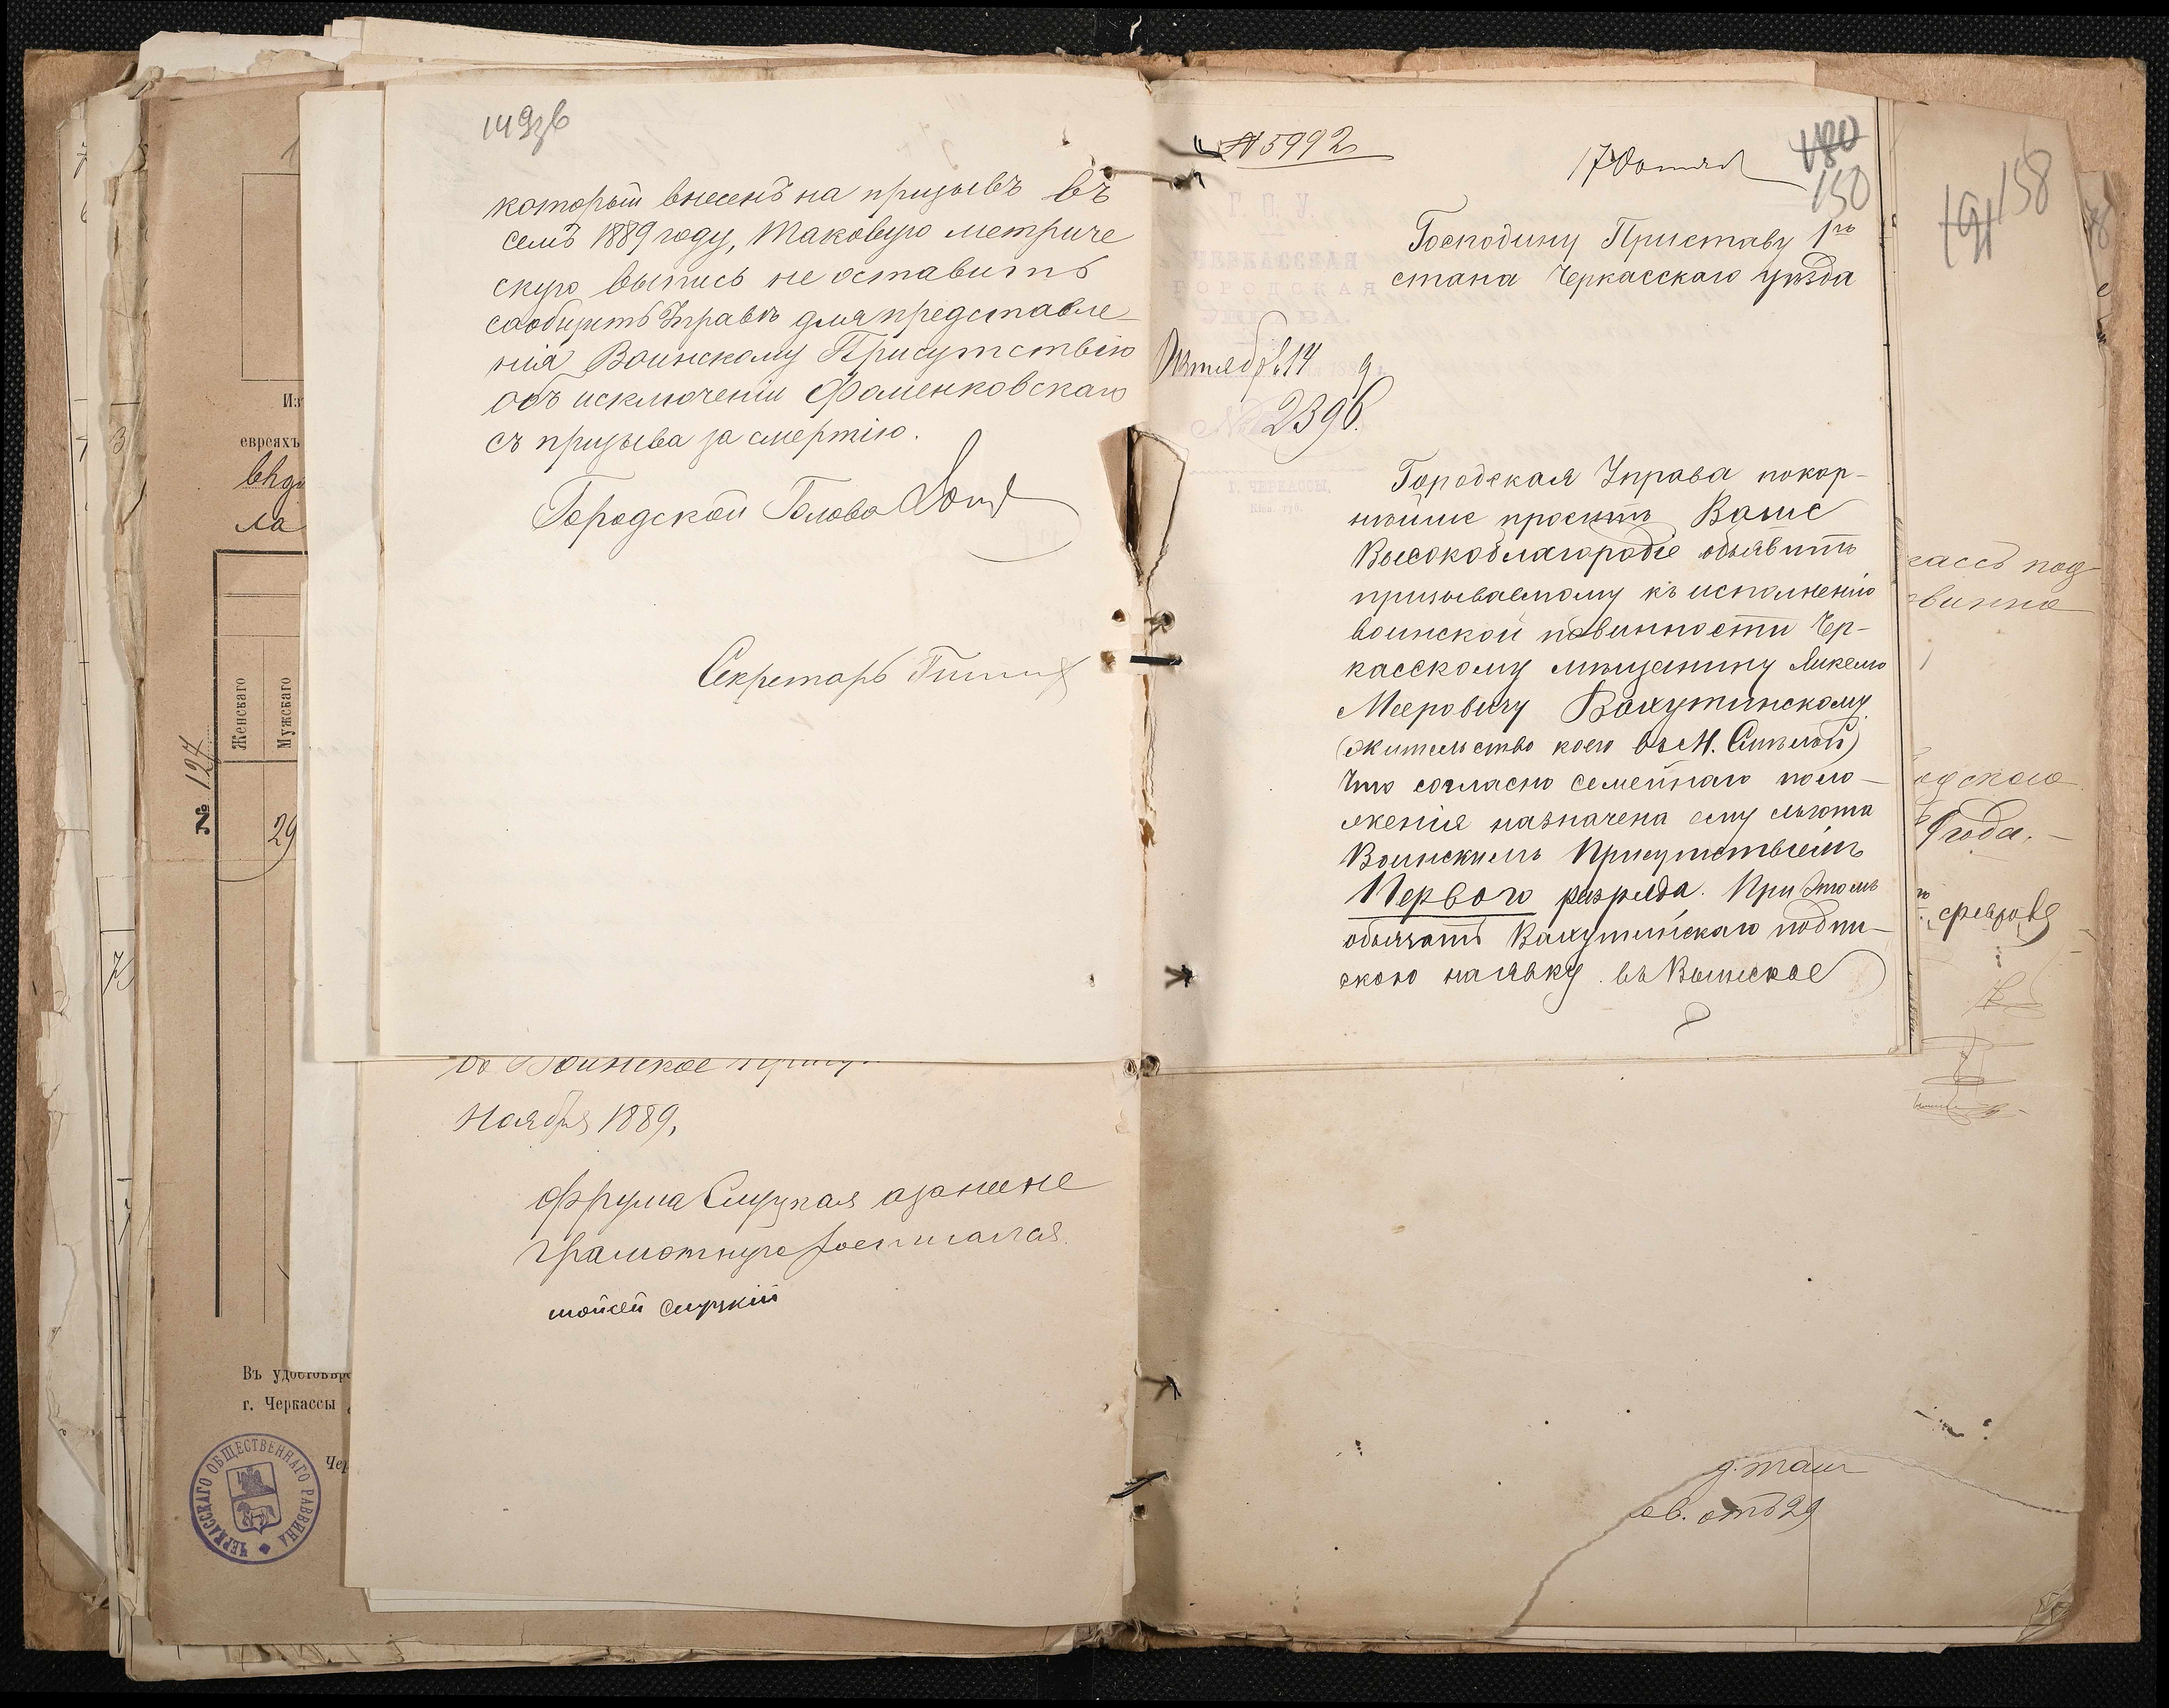 149зв
который внесенъ на призывъ въ
семъ 1889 году, таковую метриче
скую выпись не оставить
сообщить Управѣ для представле-
нія Воинскому Присутствію
объ исключеніи Фаменковскаго
съ призыва за смертію.
Городской Голова
Секретарь
Ноября 1889,
Фрума Слуцкая а за нее не
грамотную росписался
мойсей слуцкій
№ 5992
17 Октяб
180
150
Г. П. У.
ЧЕРКАССКАЯ
ГОРОДСКАЯ
УПРАВА.
Октября 14 9
2396
Г. ЧЕРКАССЫ,
Кіев. губ.
Господину Приставу 1го
стана Черкасскаго уѣзда
Городская Управа покор-
нѣйше проситъ Ваше
Высокоблагородіе объявить
призываемому къ исполненію
воинской повинности Чер-
касскому мѣщанину
Мееровичу Вахутинскому
(жительство коего въ М. Смѣлой)
что согласно семейнаго поло-
женія назначена ему льгота
Воинскимъ Присутствіемъ
Перваго разряда. При этомъ
обязать Вахутинскаго подпи-
скою на явку въ Воинское
191
158
года.
№ 127
Женскаго
Мужскаго
29
Из
евреяхъ
ла
Въ удостовѣре
г. Черкассы
Чер
ЧЕРКАССКАГО ОБЩЕСТВЕННАГО РАВВИНА
ов. отд 29